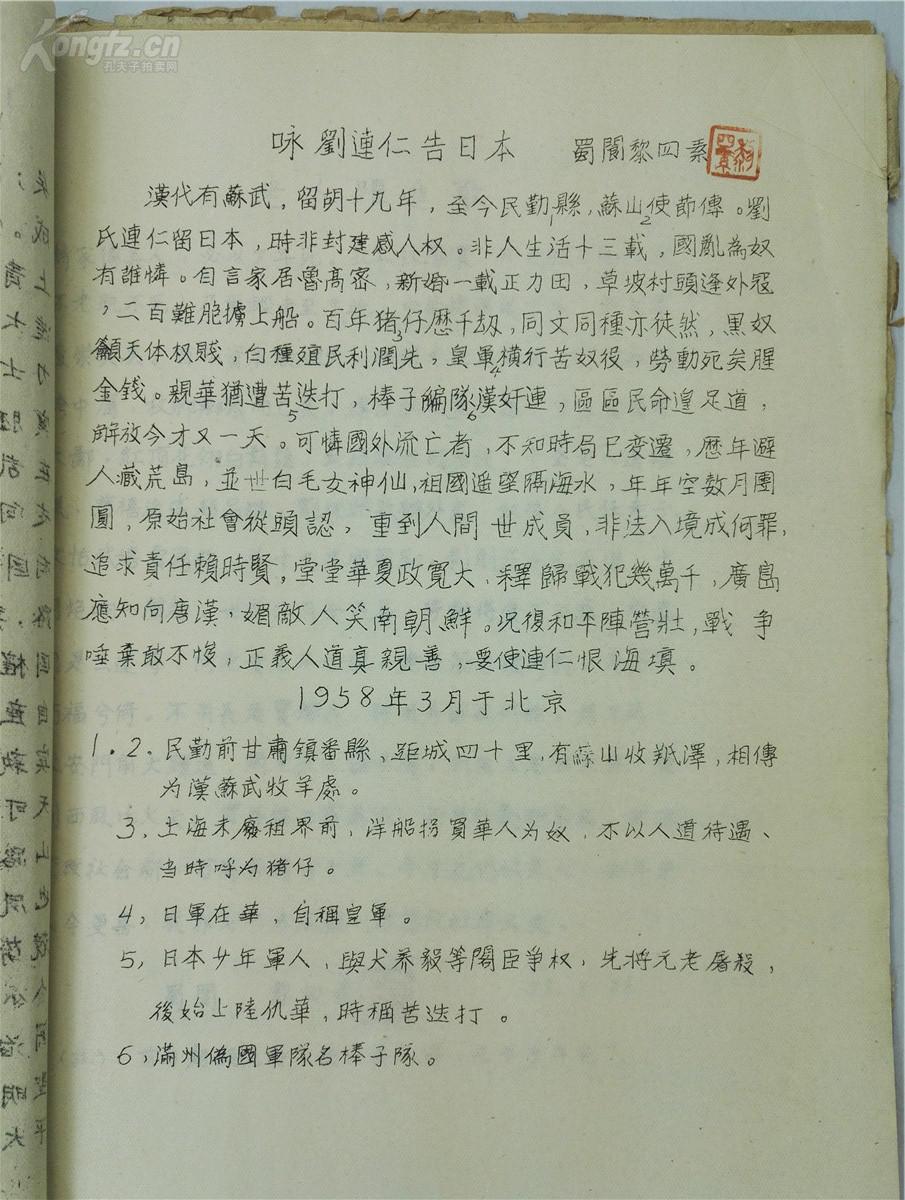 Kongfz.cn
孔夫子拍卖网
咏劉連仁告日本 蜀閬黎四素
漢代有蘇武，留胡十九年，至今民勤縣1，蘇山2使節傳。劉
氏連仁留日本，時非封建感人权。非人生活十三載，國亂為奴
有誰憐。自言家居魯髙宻，新婚一載正力田，草坡村頭逢外冦
，二百難胞擄上船。百年猪仔3歷千劫，同文同種亦徒然，黑奴
籲天体权賤，白種殖民利潤先，皇軍4横行苦奴役，勞動死矣腥
金錢。親華猶遭苦迭打5，棒子編隊6漢奸連，區區民命遑足道，
解放今才又一天。可憐國外流亡者，不知時局已变遷，歷年避
人藏荒島，並世白毛女神仙，祖國遥望隔海水，年年空数月團
圓，原始社會從頭認，重到人間世成員，非法入境成何罪，
追求責任賴時賢。堂堂華夏政寬大，釋歸戰犯幾萬千，廣島
應知向唐漢，媚敵人笑南朝鮮。况復和平陣营壯，戰争
唾棄敢不悛，正義人道真親善，要使連仁恨海填。
1958年3月于北京
1.2.民勤前甘肅鎮番縣、距城四十里，有蘇山收羝澤，相傳
为漢蘇武牧羊處。
3，上海未廢租界前，洋船拐買華人为奴，不以人道待遇、
当時呼为猪仔。
4，日軍在華，自稱皇軍。
5，日本少年軍人，與犬养毅等閣臣争权，先將元老屠殺，
後始上陸仇華，時稱苦迭打。
6，滿州偽國軍隊名棒子隊。